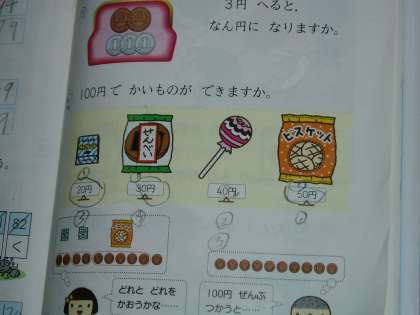 3円 へると、
なん円に なりますか。
100円で かいものが できますか。
せんべい
ビスケット
20円 30円 40円 50円
③ ④ ① ②
⑤
どれと どれを
かおうかな……
100円 ぜんぶ
つかうと……
82
<